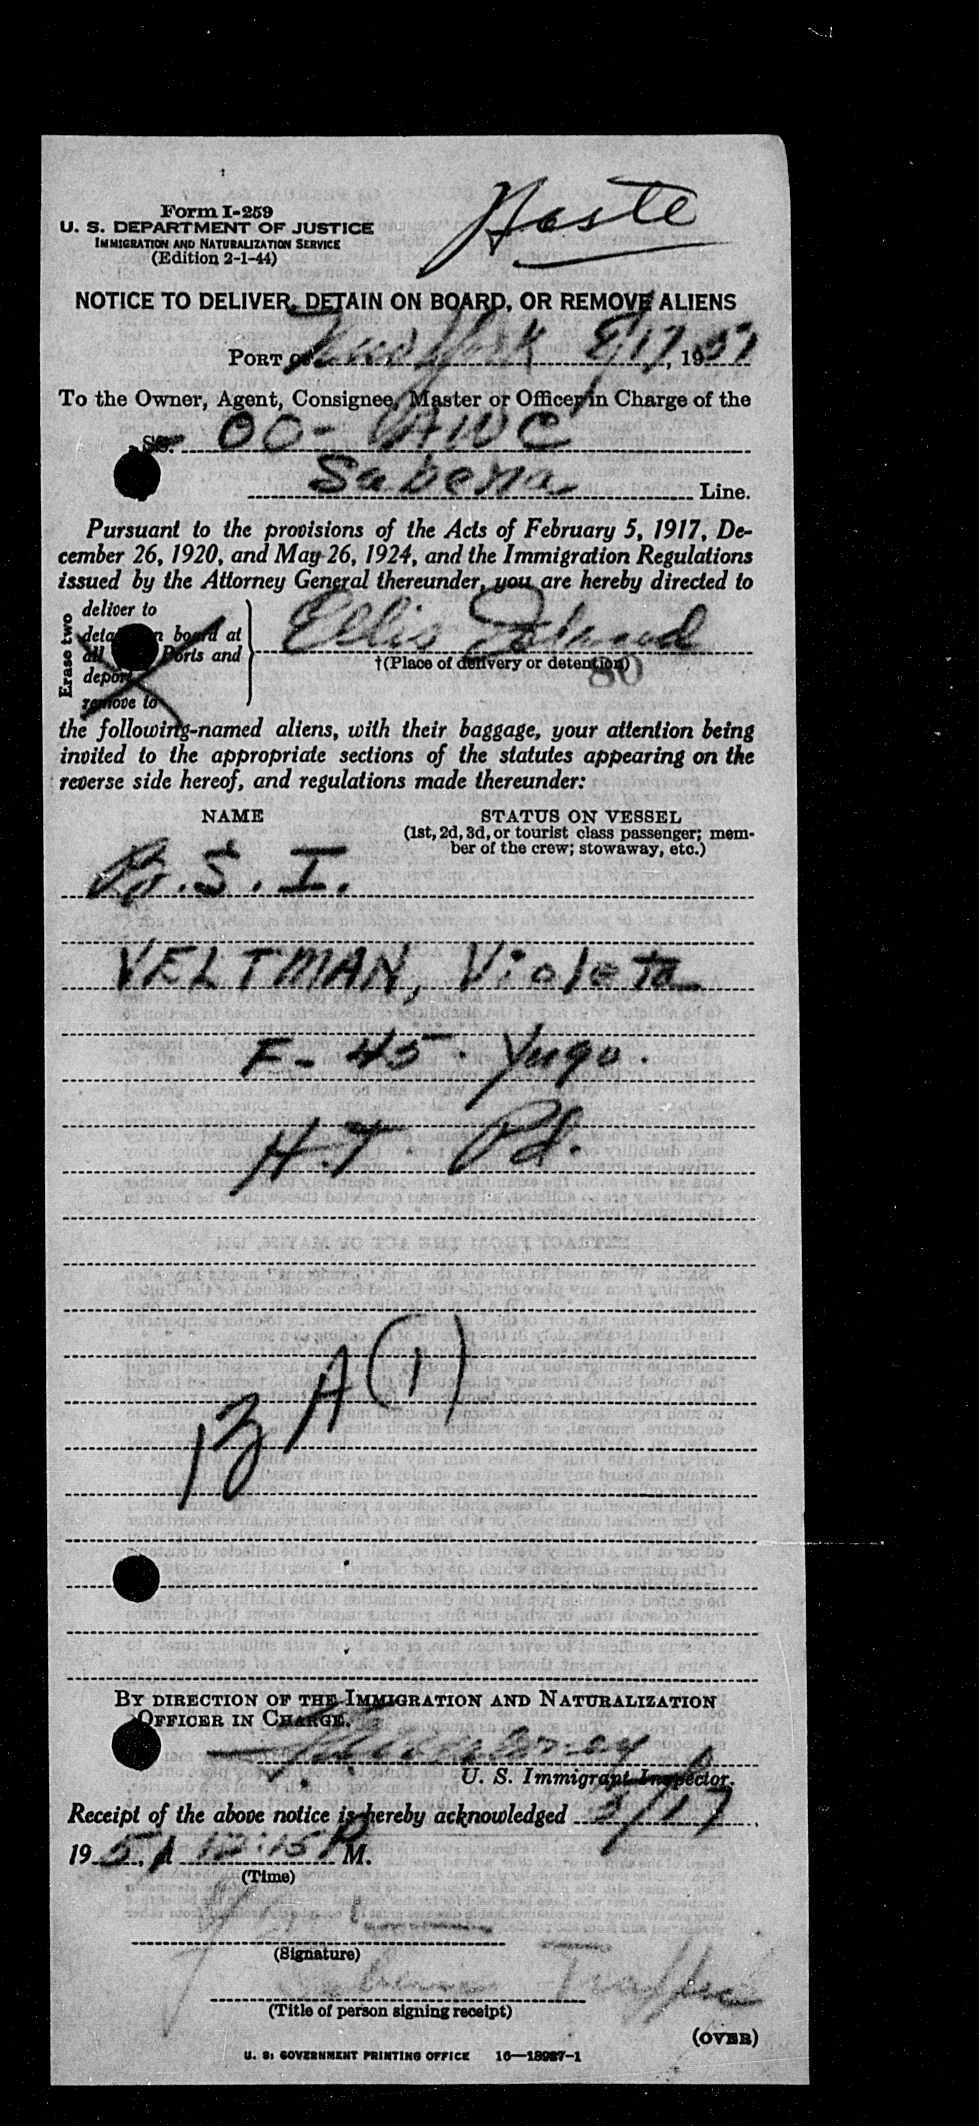 Haste
Form I-259
U. S. DEPARTMENT OF JUSTICE
IMMIGRATION AND NATURALIZATION SERVICE
(Edition 2-1-44)
NOTICE TO DELIVER, DETAIN ON BOARD, OR REMOVE ALIENS
PORT OF New York 2/17, 1951
To the Owner, Agent, Consignee, Master or Officer in Charge of the
SS. OO-AWC
Sabena Line.
Pursuant to the provisions of the Acts of February 5, 1917, De-
cember 26, 1920, and May 26, 1924, and the Immigration Regulations
issued by the Attorney General thereunder, you are hereby directed to
Erase two
deliver to
detain on board at
all Ports and
deport
remove to
Ellis Island
†(Place of delivery or detention)
80
the following-named aliens, with their baggage, your attention being
invited to the appropriate sections of the statutes appearing on the
reverse side hereof, and regulations made thereunder:
NAME STATUS ON VESSEL
(1st, 2d, 3d, or tourist class passenger; mem-
ber of the crew; stowaway, etc.)
B.S.I.
VELTMAN, Violeta
F- 45 - Yugo
H.T Pd.
13 A (1)
BY DIRECTION OF THE IMMIGRATION AND NATURALIZATION
OFFICER IN CHARGE.
U. S. Immigrant Inspector.
Receipt of the above notice is hereby acknowledged 2/17
1951, 12:15 P M.
(Time)
(Signature)
Sabena Traffic
(Title of person signing receipt)
(OVER)
U. S. GOVERNMENT PRINTING OFFICE 16—18987-1